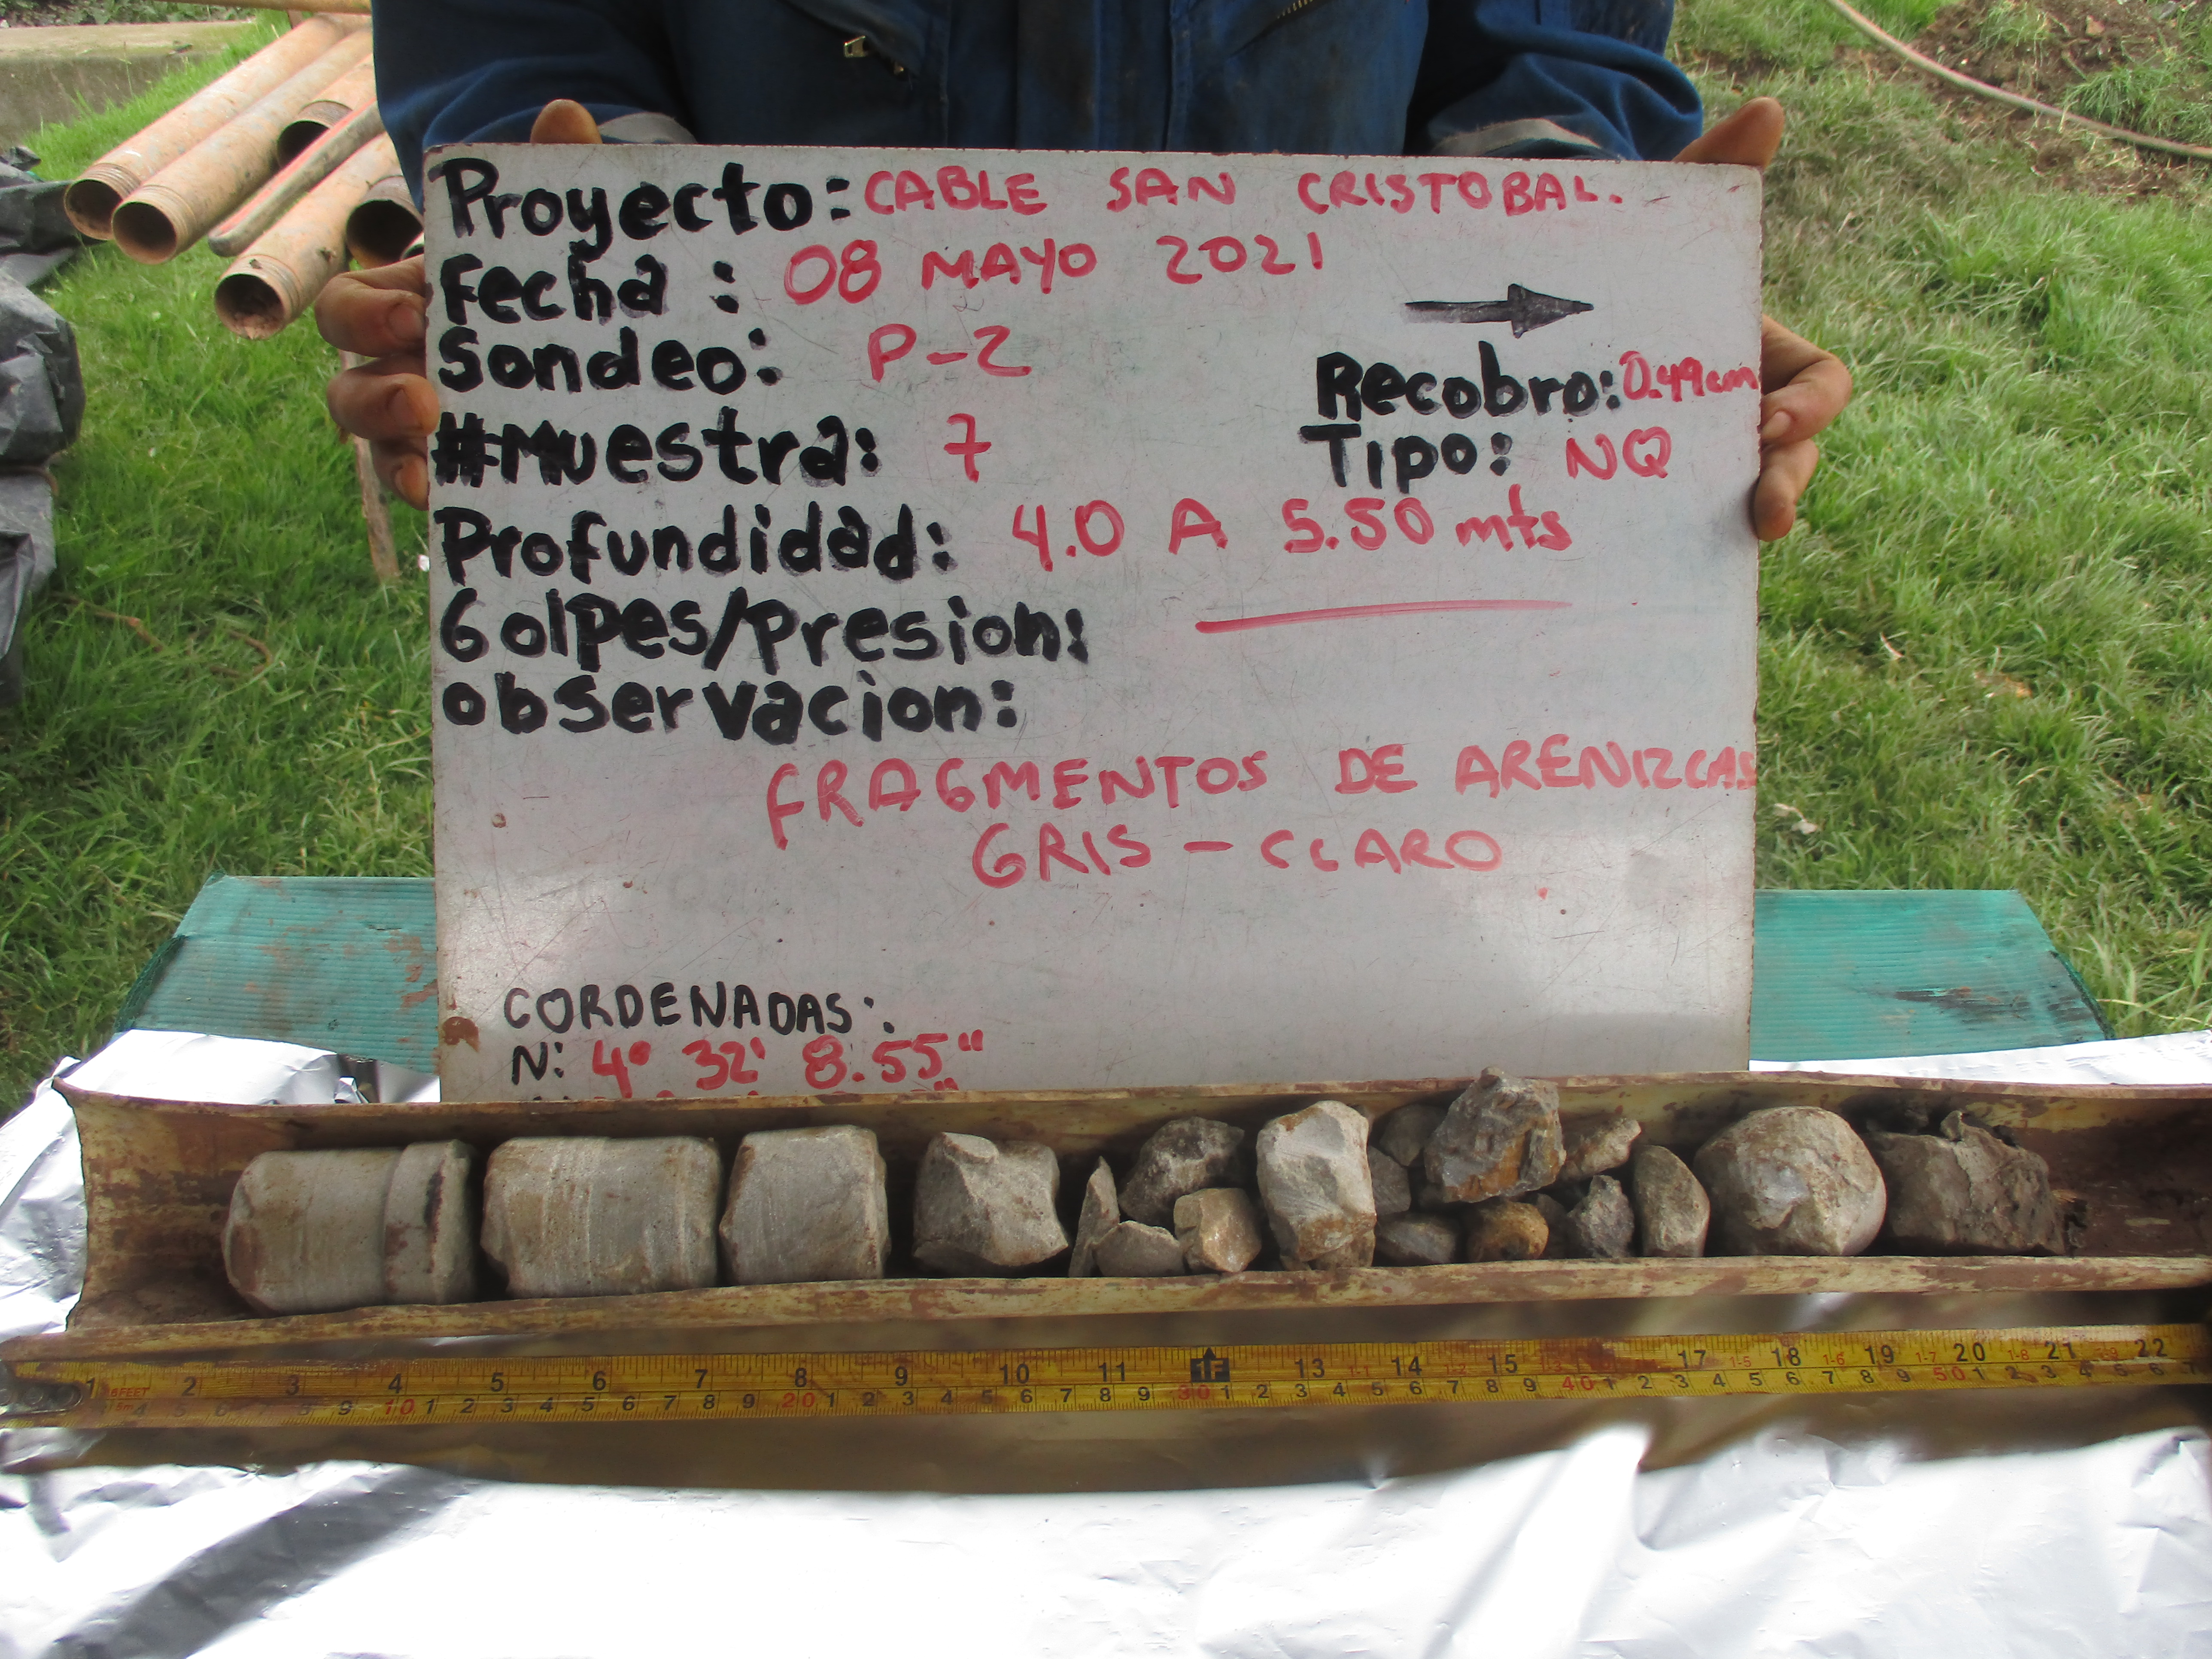 Proyecto: CABLE SAN CRISTOBAL.
Fecha: 08 MAYO 2021
Sondeo: P-2
Recobro: 0.49cm
#Muestra: 7
Tipo: NQ
Profundidad: 4.0 A 5.50 mts
Golpes/Presion:
observacion:
FRAGMENTOS DE ARENIZCAS
GRIS - CLARO
CORDENADAS:
N: 4° 32' 8.55"
1 2 3 4 5 6 7 8 9 10 11 1F 13 14 15 17 18 19 20 21 22